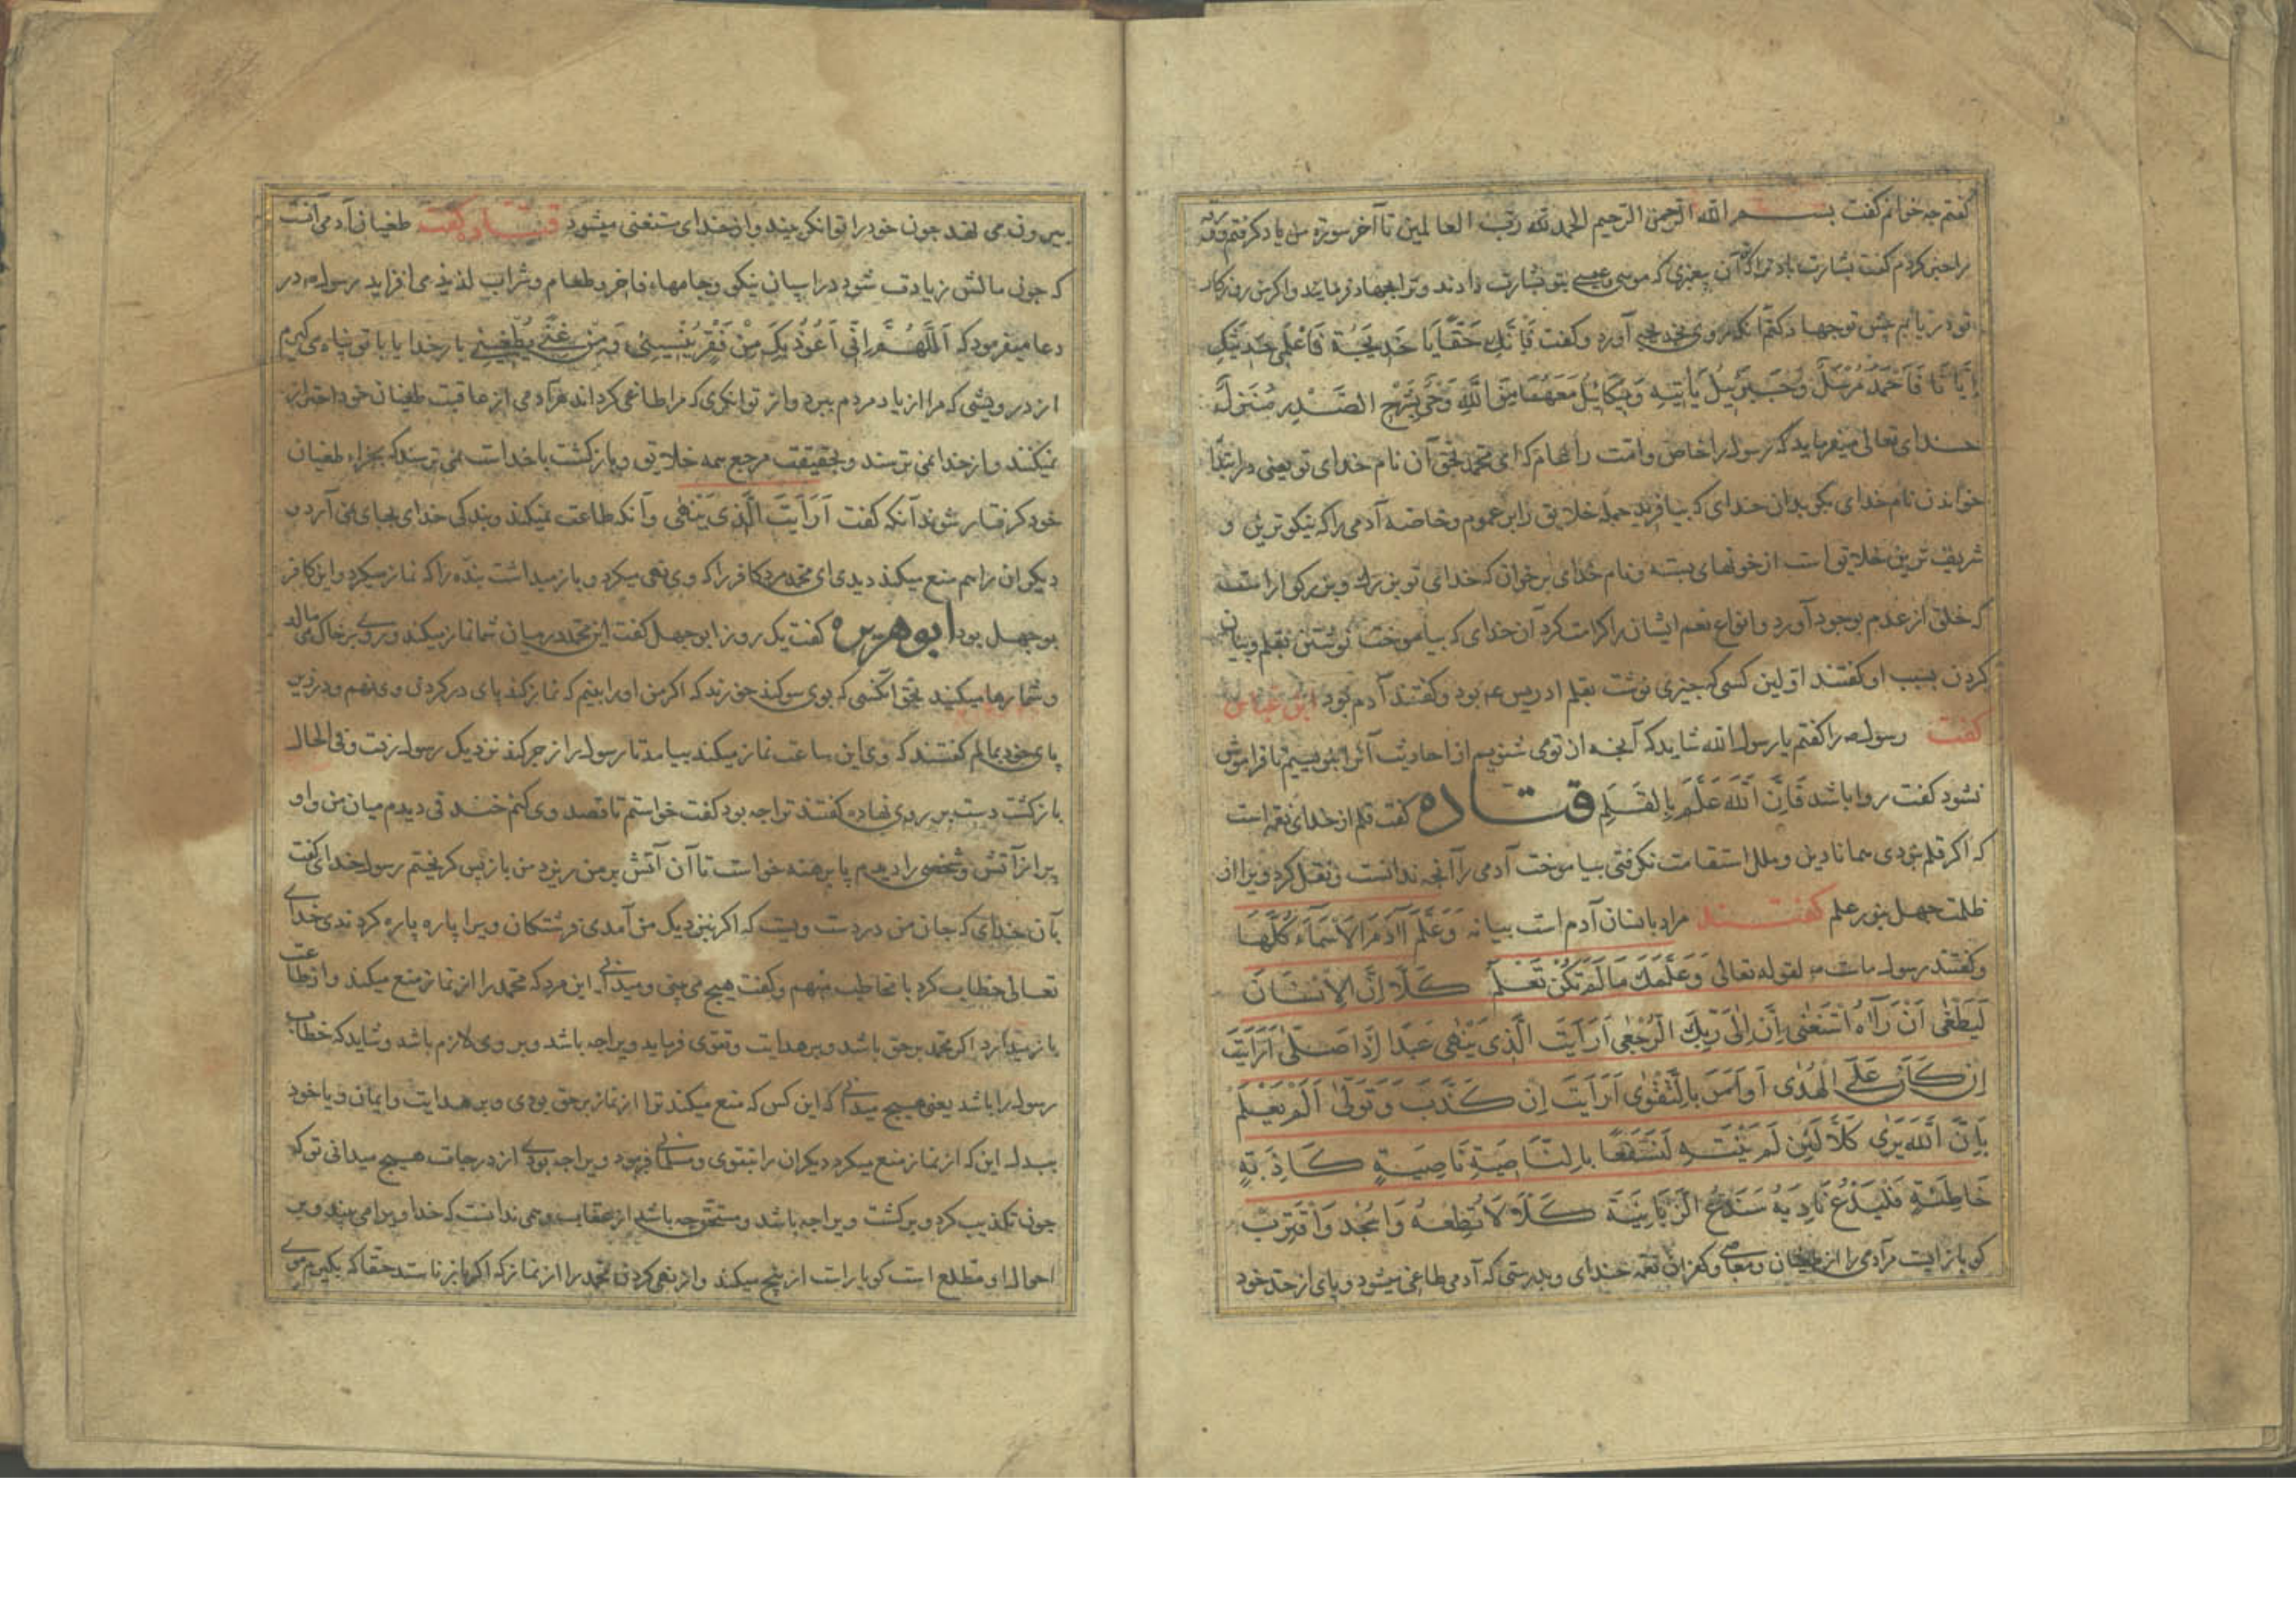 گفتم چه خوانم گفت بسم الله الرحمن الرحيم الحمد لله رب العالمين تا آخر سورة پس ياد گرفتم ورقه
را خبر کردم گفت بشارت باد ترا که آن پيغمبری که موسی و عيسی بتو بشارت دادند و ترا بجهاد فرمايند و اگر من روزگار
تو دريابم پيش تو جهاد کنم آنکه روی بخديجه آورد و گفت فَاِنْ يَكُ حَقًّا يَا خَدِيجَةُ فَاعْلَمِي حَدِيثَكِ
اِيَّانَا فَاَحْمَدُ مُرْسَلٌ وَجَبْرَئِيلُ يَأْتِيهِ وَمِيكَائِيلُ مَعَهُمَا مِنَ اللَّهِ وَحْيٌ يَشْرَحُ الصَّدْرَ مُنْزَلٌ
خدای تعالی ميفرمايد که رسول را خاص و امت را عام که ای محمد بحق آن نام خدای تو يعنی در ابتدا
خواندن نام خدای بگو بدان خدای که بيافريد جمله خلايق را بر عموم و خاصه آدمی را که نيکوترين و
شريف ترين خلايق است از خونهای بسته و نام خدای برخوان که خدای تو بزرگ و بزرگوار است
که خلق از عدم بوجود آورد و انواع نعم ايشان را کرامت کرد آن خدای که بياموخت نوشتن بقلم و بيان
کردن بسبب او گفتند اولين کسی که چيزی نوشت بقلم ادريس ع م بود و گفتند آدم بود ابن عباس
گفت رسول ص را گفتم يا رسول الله شايد که آنچه از تو می شنويم از احاديث آنرا بنويسيم تا فراموش
نشود گفت روا باشد فَاِنَّ اللَّهَ عَلَّمَ بِالْقَلَمِ قتاده گفت قلم از خدای نعمه است
که اگر قلم نبودی همانا دين و ملل استقامت نگرفتی بياموخت آدمی را آنچه ندانست و نقل کرد ويرا از
ظلمت جهل بنور علم گفتند مراد بانسان آدم است بيانه وَعَلَّمَ آدَمَ الْاَسْمَاءَ كُلَّهَا
و گفتند رسول ماست ص لقوله تعالی وَعَلَّمَكَ مَا لَمْ تَكُنْ تَعْلَمُ كَلَّا اِنَّ الْاِنْسَانَ
لَيَطْغَى اَنْ رَآهُ اسْتَغْنَى اِنَّ اِلَى رَبِّكَ الرُّجْعَى اَرَاَيْتَ الَّذِى يَنْهَى عَبْدًا اِذَا صَلَّى اَرَاَيْتَ
اِنْ كَانَ عَلَى الْهُدَى اَوْ اَمَرَ بِالتَّقْوَى اَرَاَيْتَ اِنْ كَذَّبَ وَتَوَلَّى اَلَمْ يَعْلَمْ
بِاَنَّ اللَّهَ يَرَى كَلَّا لَئِنْ لَمْ يَنْتَهِ لَنَسْفَعًا بِالنَّاصِيَةِ نَاصِيَةٍ كَاذِبَةٍ
خَاطِئَةٍ فَلْيَدْعُ نَادِيَهُ سَنَدْعُ الزَّبَانِيَةَ كَلَّا لَا تُطِعْهُ وَاسْجُدْ وَاقْتَرِبْ
گو باز ايست مر آدمی را از طغيان و معاصی و کفران نعمه خدای و بدرستی که آدمی طاغی ميشود و پای از حد خود
بيرون می نهد چون خود را توانگر بيند و از خدای مستغنی ميشود قتاده گفت طغيان آدمی آنست
که چون مالش زيادت شود در اسپان نيکو و جامهاء فاخر و طعام و شراب لذيذ می افزايد رسول ص در
دعا ميفرمود که اَللَّهُمَّ اِنِّي اَعُوذُ بِكَ مِنْ فَقْرٍ يُنْسِينِي وَمِنْ غِنًى يُطْغِينِي بار خدايا با تو پناه می گيرم
از درويشی که مرا از ياد مردم ببرد و از توانگری که مرا طاغی گرداند مر آدمی از عاقبت طغيان خود احتراز
نميکند و از خدا نمی ترسند و بحقيقت مرجع همه خلايق و بازگشت با خداست نمی ترسد که بجزاء طغيان
خود گرفتار شوند آنکه گفت اَرَاَيْتَ الَّذِى يَنْهَى و آنکه طاعت نميکند و بندگی خدای بجای نمی آرد و
ديگران را هم منع ميکند ديدی ای محمد مرد کافر را که وی نهی ميکرد و باز ميداشت بنده را که نماز ميکرد و اين کافر
بوجهل بود ابوهريره گفت يک روز ابوجهل گفت اين محمد در ميان شما نماز ميکند و روی بر خاک می مالد
و شما رها ميکنيد بحق آنکسی که بوی سوگند حق زند که اگر من او را بينم که نماز کند پای در گردن وی نهم و در زير
پای خود بمالم گفتند که وی اين ساعت نماز ميکند بيامد تا رسول را زجر کند نزديک رسول رفت و فی الحال
بازگشت دست بر روی نهاده گفتند ترا چه بود گفت خواستم تا قصد وی کنم خندقی ديدم ميان من و او
پر از آتش و شخصی را ديدم پا برهنه خواست تا آن آتش بر من ريزد من باز پس گريختم رسول خدای گفت
بآن خدای که جان من در دست ويست که اگر بنزديک من آمدی فرشتگان ويرا پاره پاره کردندی خدای
تعالی خطاب کرد با مخاطب مبهم و گفت هيچ می بينی و ميدانی اين مرد که محمد را از نماز منع ميکند و از طاعت
باز ميدارد اگر محمد بر حق باشد و بر هدايت و تقوی فرمايد ويرا چه باشد و بر وی لازم باشد و شايد که خطاب
رسول را باشد يعنی هيچ ميدانی که اين کس که منع ميکند ترا از نماز بر حق بودی و بر هدايت و ايمان و يا خود
ببدل اين که از نماز منع ميکرد ديگران را بتقوی و مسلمانی فرمود ويرا چه بودی از درجات هيچ ميدانی تو که
چون تکذيب کرد و برگشت ويرا چه باشد و مستحق چه باشد از عقاب و می ندانست که خدا ويرا می بيند و بر
احوال او مطلع است گو باز است از پنج ميکند و از نهی کردن محمد را از نماز که اگر باز نايستد حقا که بگيرم موی